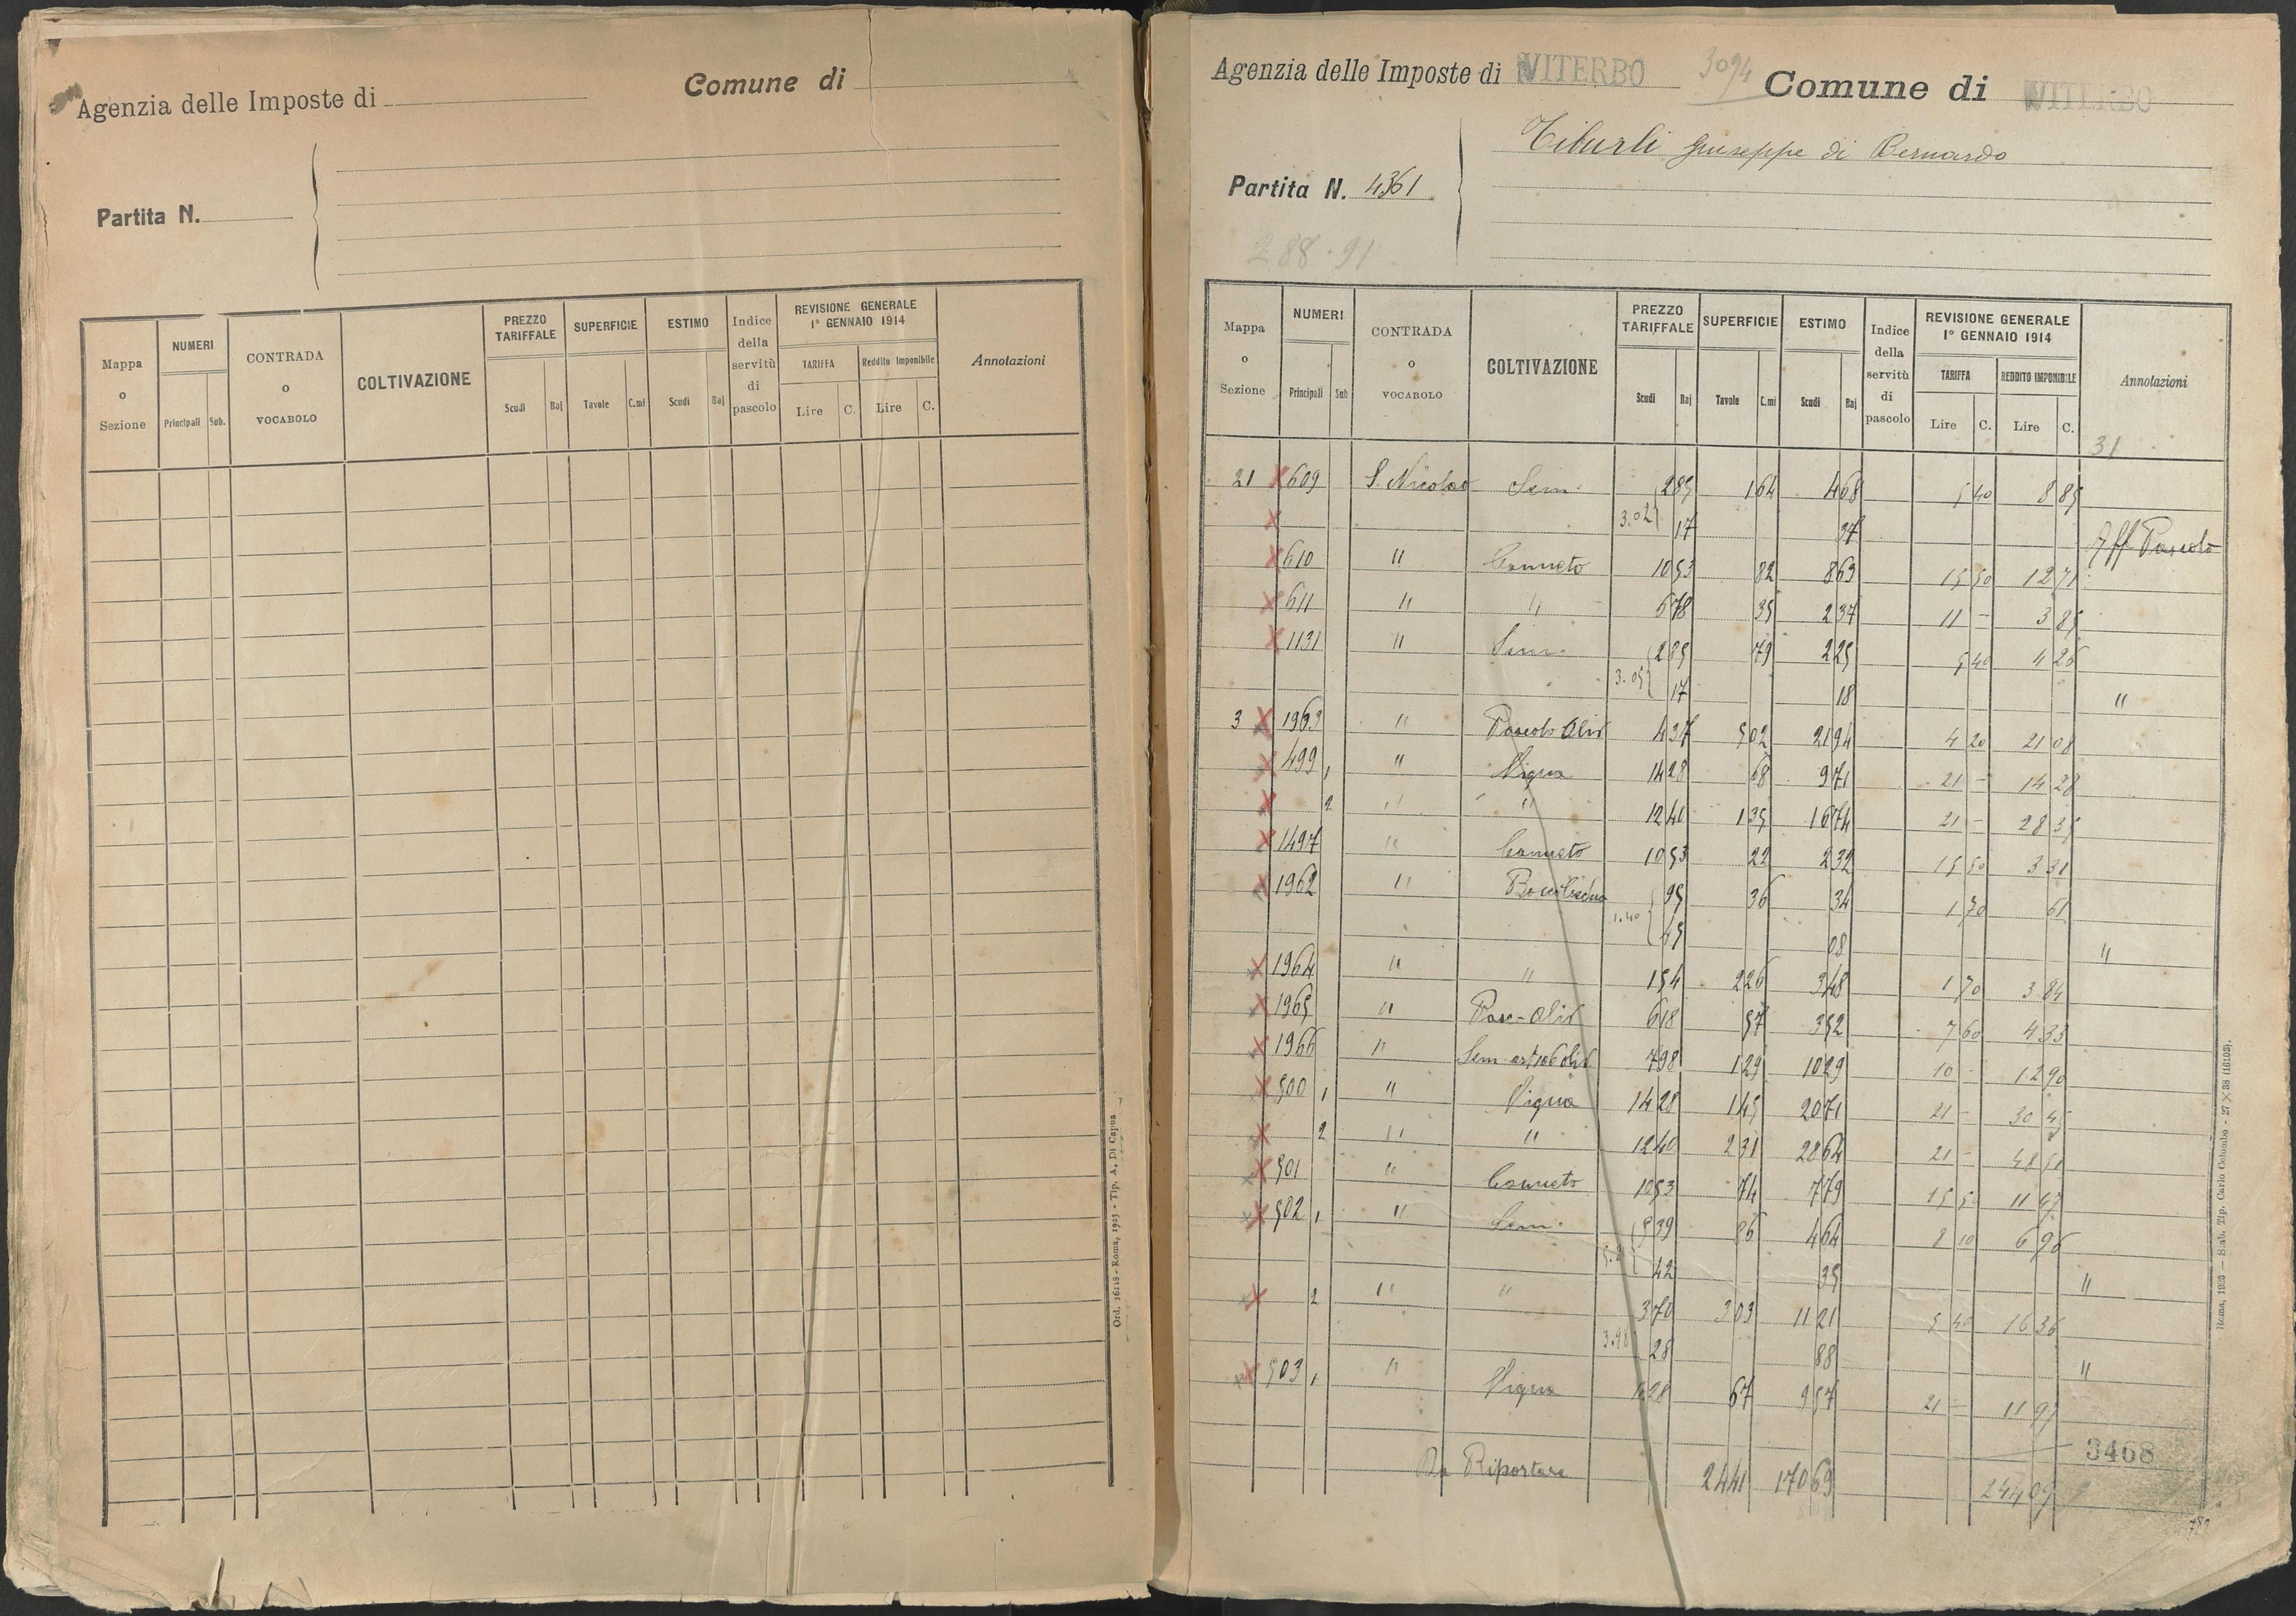 Agenzia delle Imposte di
Comune di
Partita N.
Mappa o Sezione
NUMERI
Principali Sub.
CONTRADA o VOCABOLO
COLTIVAZIONE
PREZZO TARIFFALE
Scudi Baj
SUPERFICIE
Tavole C.mi
ESTIMO
Scudi Baj
Indice della servitù di pascolo
REVISIONE GENERALE 1° GENNAIO 1914
TARIFFA
Lire C.
Reddito Imponibile
Lire C.
Annotazioni
Ord. 16118 - Roma, 1923 - Tip. A. Di Capua
Agenzia delle Imposte di VITERBO 3094 Comune di VITERBO
Tiburli Giuseppe di Bernardo
Partita N. 4361
288.91
Mappa o Sezione
NUMERI
Principali Sub
CONTRADA o VOCABOLO
COLTIVAZIONE
PREZZO TARIFFALE
Scudi Baj
SUPERFICIE
Tavole C.mi
ESTIMO
Scudi Baj
Indice della servitù di pascolo
REVISIONE GENERALE 1° GENNAIO 1914
TARIFFA
Lire C.
REDDITO IMPONIBILE
Lire C.
Annotazioni
31
21 X 609 S. Nicolao Sem. 2 85 1 64 4 68 5 40 8 85
X 3.02 17 27 Aff Pascolo
X 610 " Canneto 10 53 82 8 63 15 50 12 71
X 611 " " 6 78 35 2 37 11 - 3 85
X 1131 " Sem. 2 85 79 2 25 5 40 4 26
17 18 "
3 X 1963 " Pascolo Oliv 4 37 5 02 21 94 4 20 21 08
X 499 1 " Vigna 14 28 68 9 71 21 - 14 28
X 2 " " 12 40 1 35 16 74 21 - 28 35
X 1497 " Canneto 10 53 22 2 32 15 50 3 31
X 1962 " 95 36 34 1 70 61
1.40 45 08 "
X 1964 " " 1 54 2 26 3 48 1 70 3 84
X 1965 " Pasc-Oliv 6 18 57 3 52 7 60 4 33
X 1966 " 7 98 1 29 10 29 10 - 12 90
X 500 1 " Vigna 14 28 1 45 20 71 21 - 30 45
X 2 " " 12 40 2 31 28 64 21 - 48 51
X 501 " Canneto 10 53 74 7 79 15 5 11 47
X 502 1 " Sem. 5 39 86 4 64 8 10 6 96
42 35 "
X 2 " " 3 70 3 03 11 21 5 40 16 36
3.98 28 88 "
X 503 1 " Vigna 14 28 67 9 57 21 - 11 97
3468
Da Riportare 24 41 170 69 244 09
Roma, 1923 — Stab. Tip. Carlo Colombo - 27 × 38 (16103).